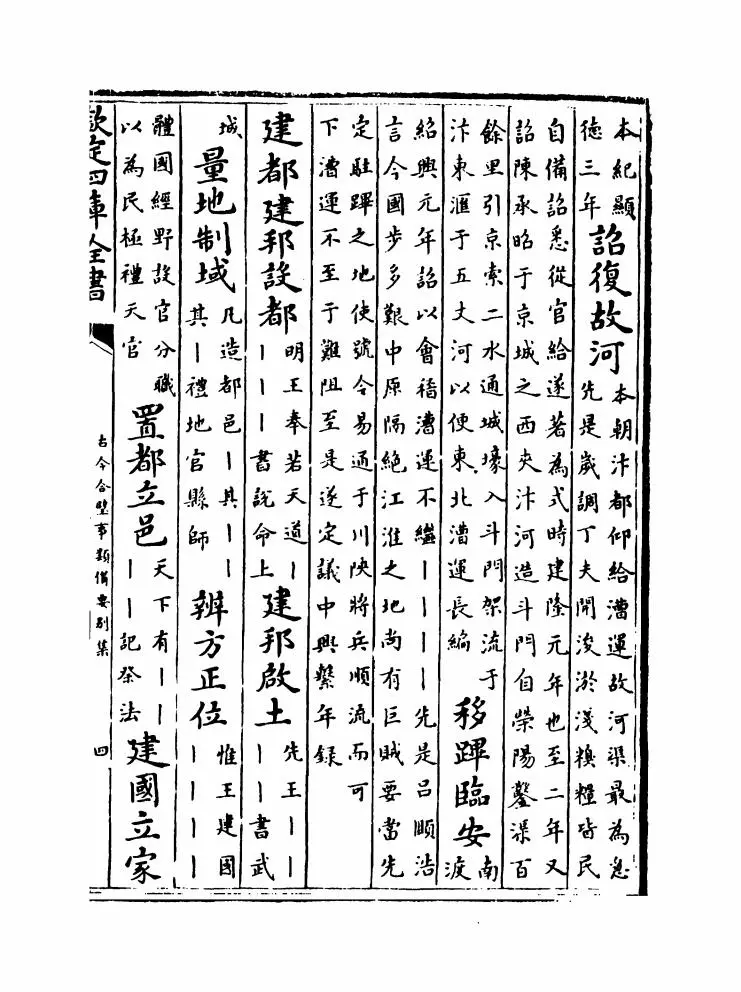 本紀顯德三年詔復故河本朝汴都仰給漕運故河渠最為急先是歲調丁夫開浚淤淺糗糧皆民
自備詔悉從官給遂著為式時建隆元年也至二年又
詔陳承昭于京城之西夾汴河造斗門自滎陽鑿渠百
餘里引京索二水通城壕入斗門架流于汴東滙于五丈河以便東北漕運長編移蹕臨安南渡
紹興元年詔以會稽漕運不繼｜｜｜｜先是吕頤浩
言今國步多艱中原隔絶江淮之地尚有巨賊要當先
定駐蹕之地使號令易通于川陜將兵順流而可
下漕運不至于難阻至是遂定議中興繫年録
建都建邦設都明王奉若天道｜｜｜｜書說命上建邦啟土先王｜｜｜｜書武
城量地制域凡造都邑｜其｜｜其｜禮地官縣師辨方正位惟王建國｜｜｜｜
體國經野設官分職以為民極禮天官置都立邑天下有｜｜｜｜記祭法建國立家
欽定四庫全書
古今合璧事類備要别集
四